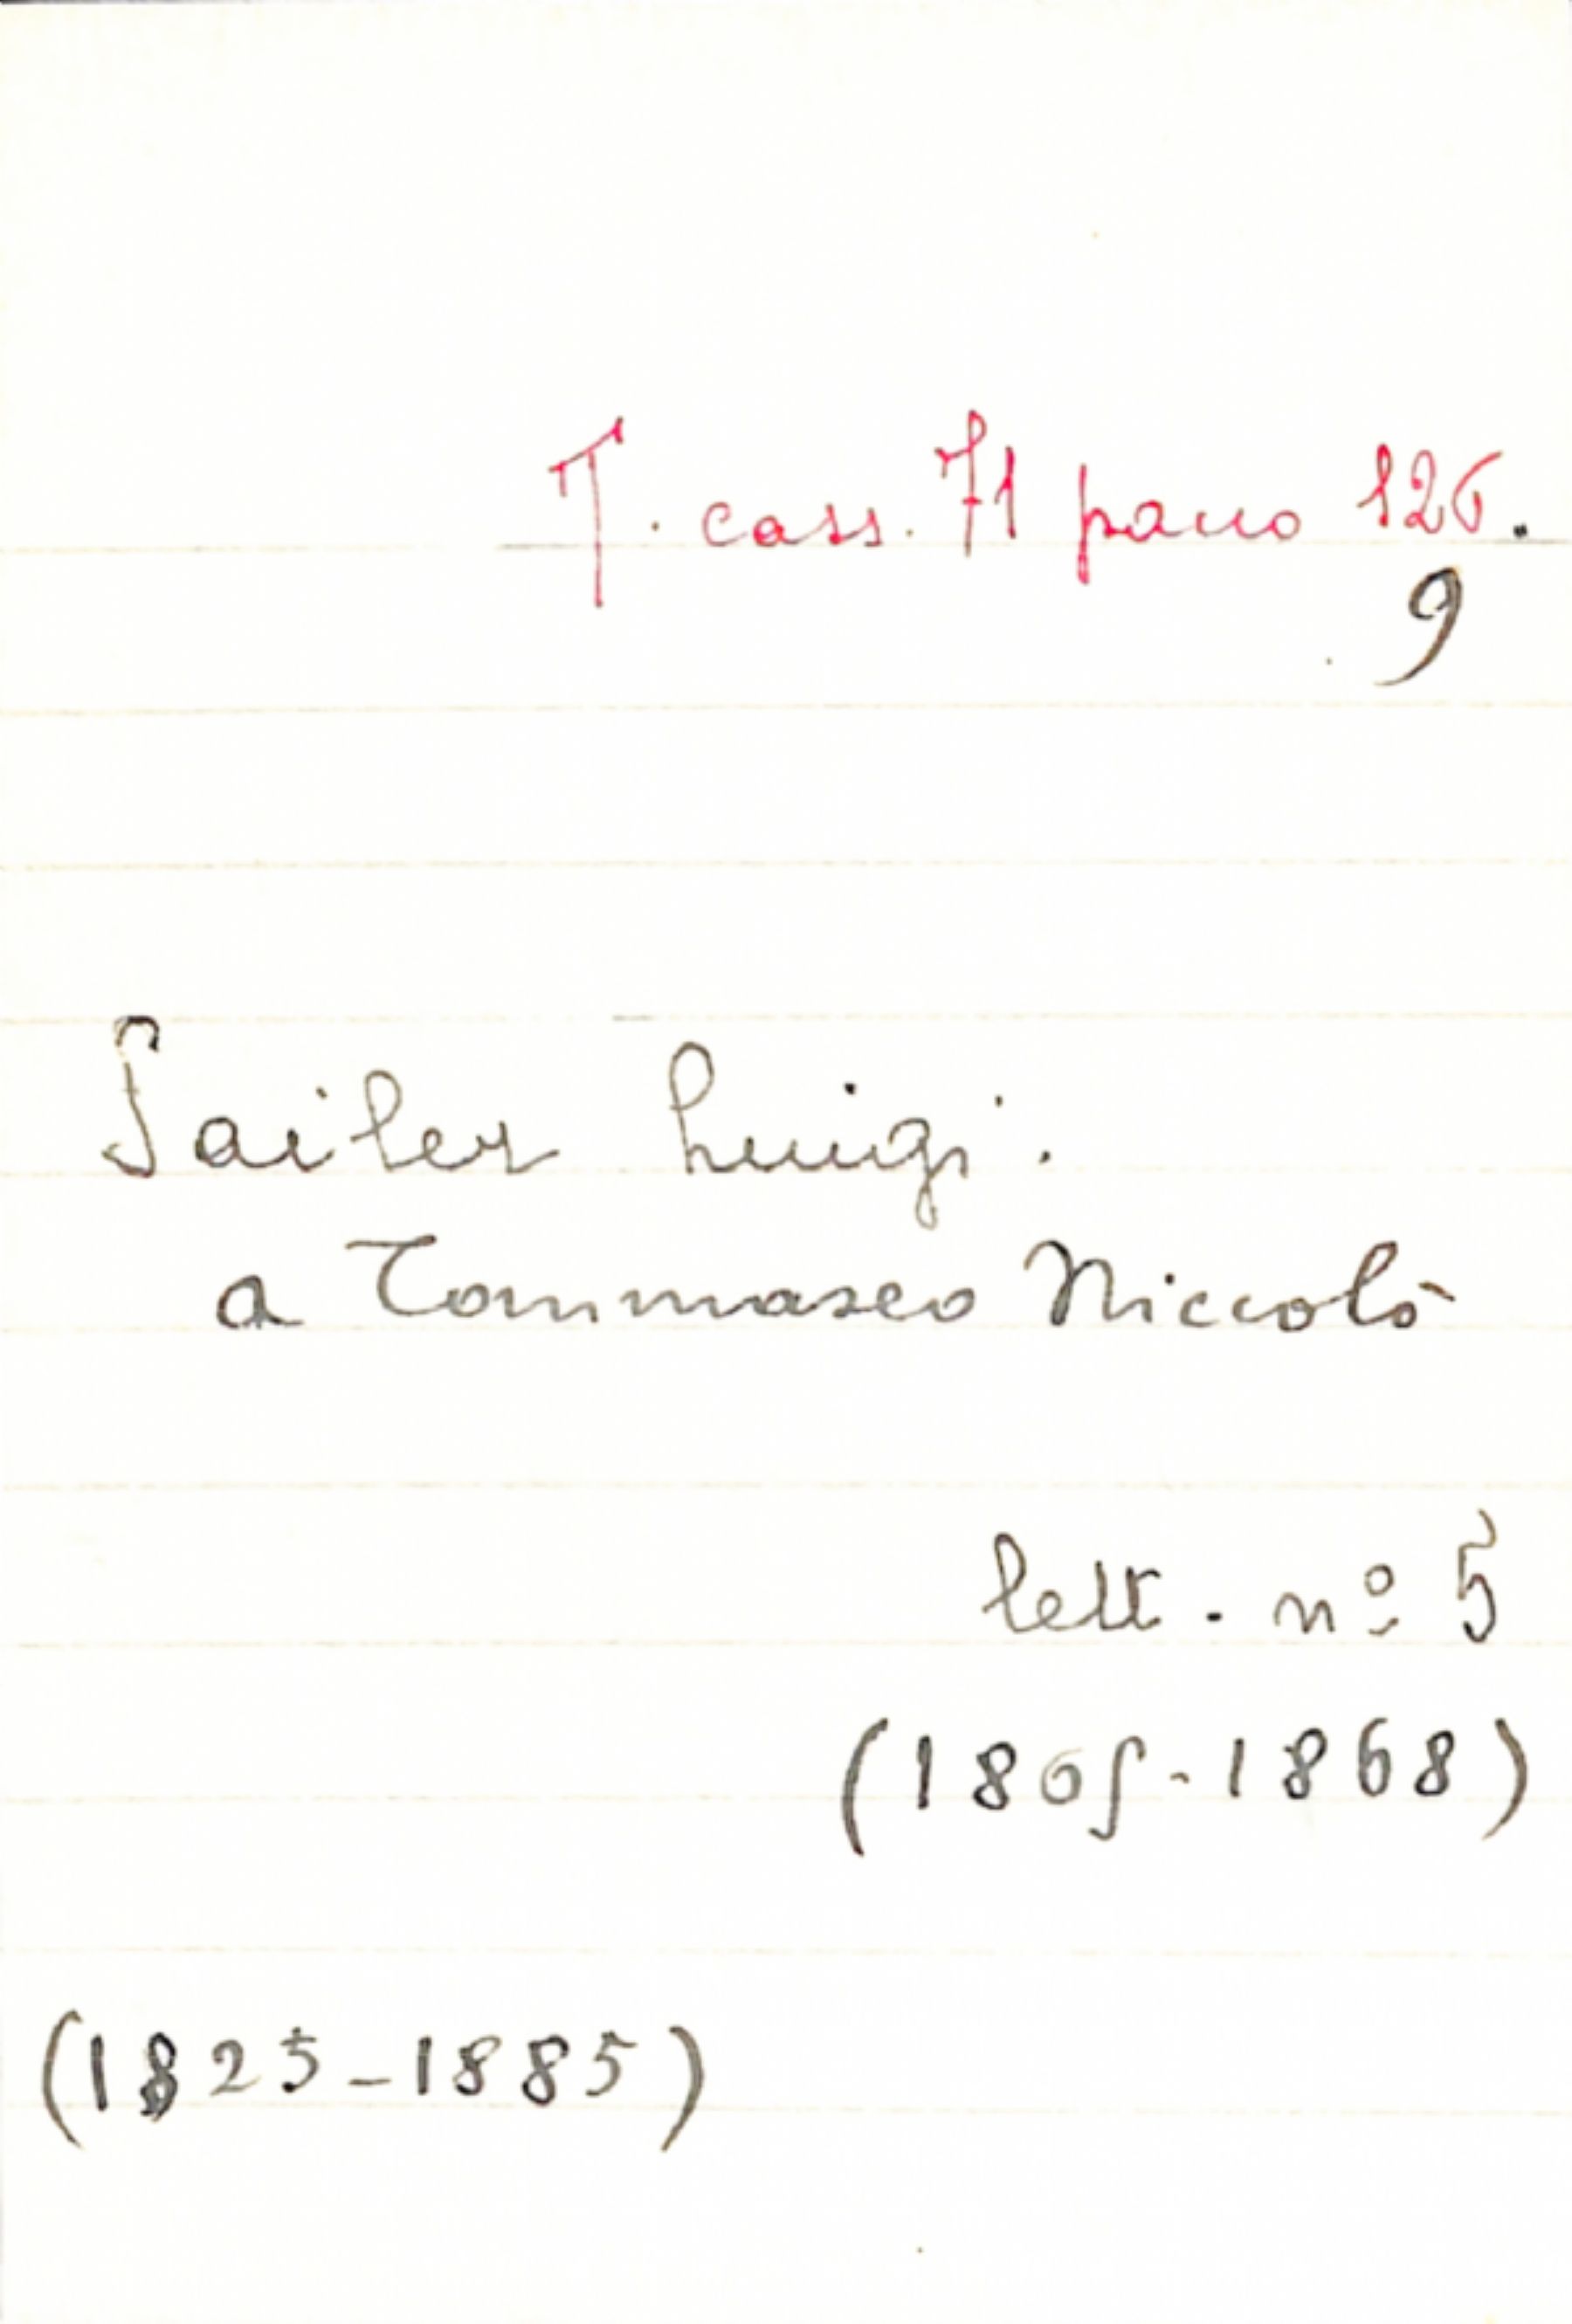 T. cass. 71 pacco 126.
9
Sailer Luigi.
a Tommaseo Niccolò
lett. nº 5
(1865-1868)
(1825-1885)